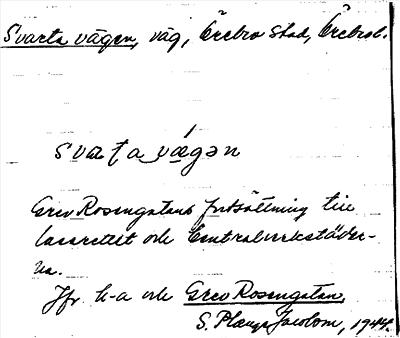 Svarta vägen, väg, Örebro stad, Örebro l.
svaṭa vægən
Grev Rosengatans fortsättning till
lasarettet och Centralverkstäder-
na.
Jfr k-a och Grev Rosengatan.
S. Plænge Jacobson, 1944.